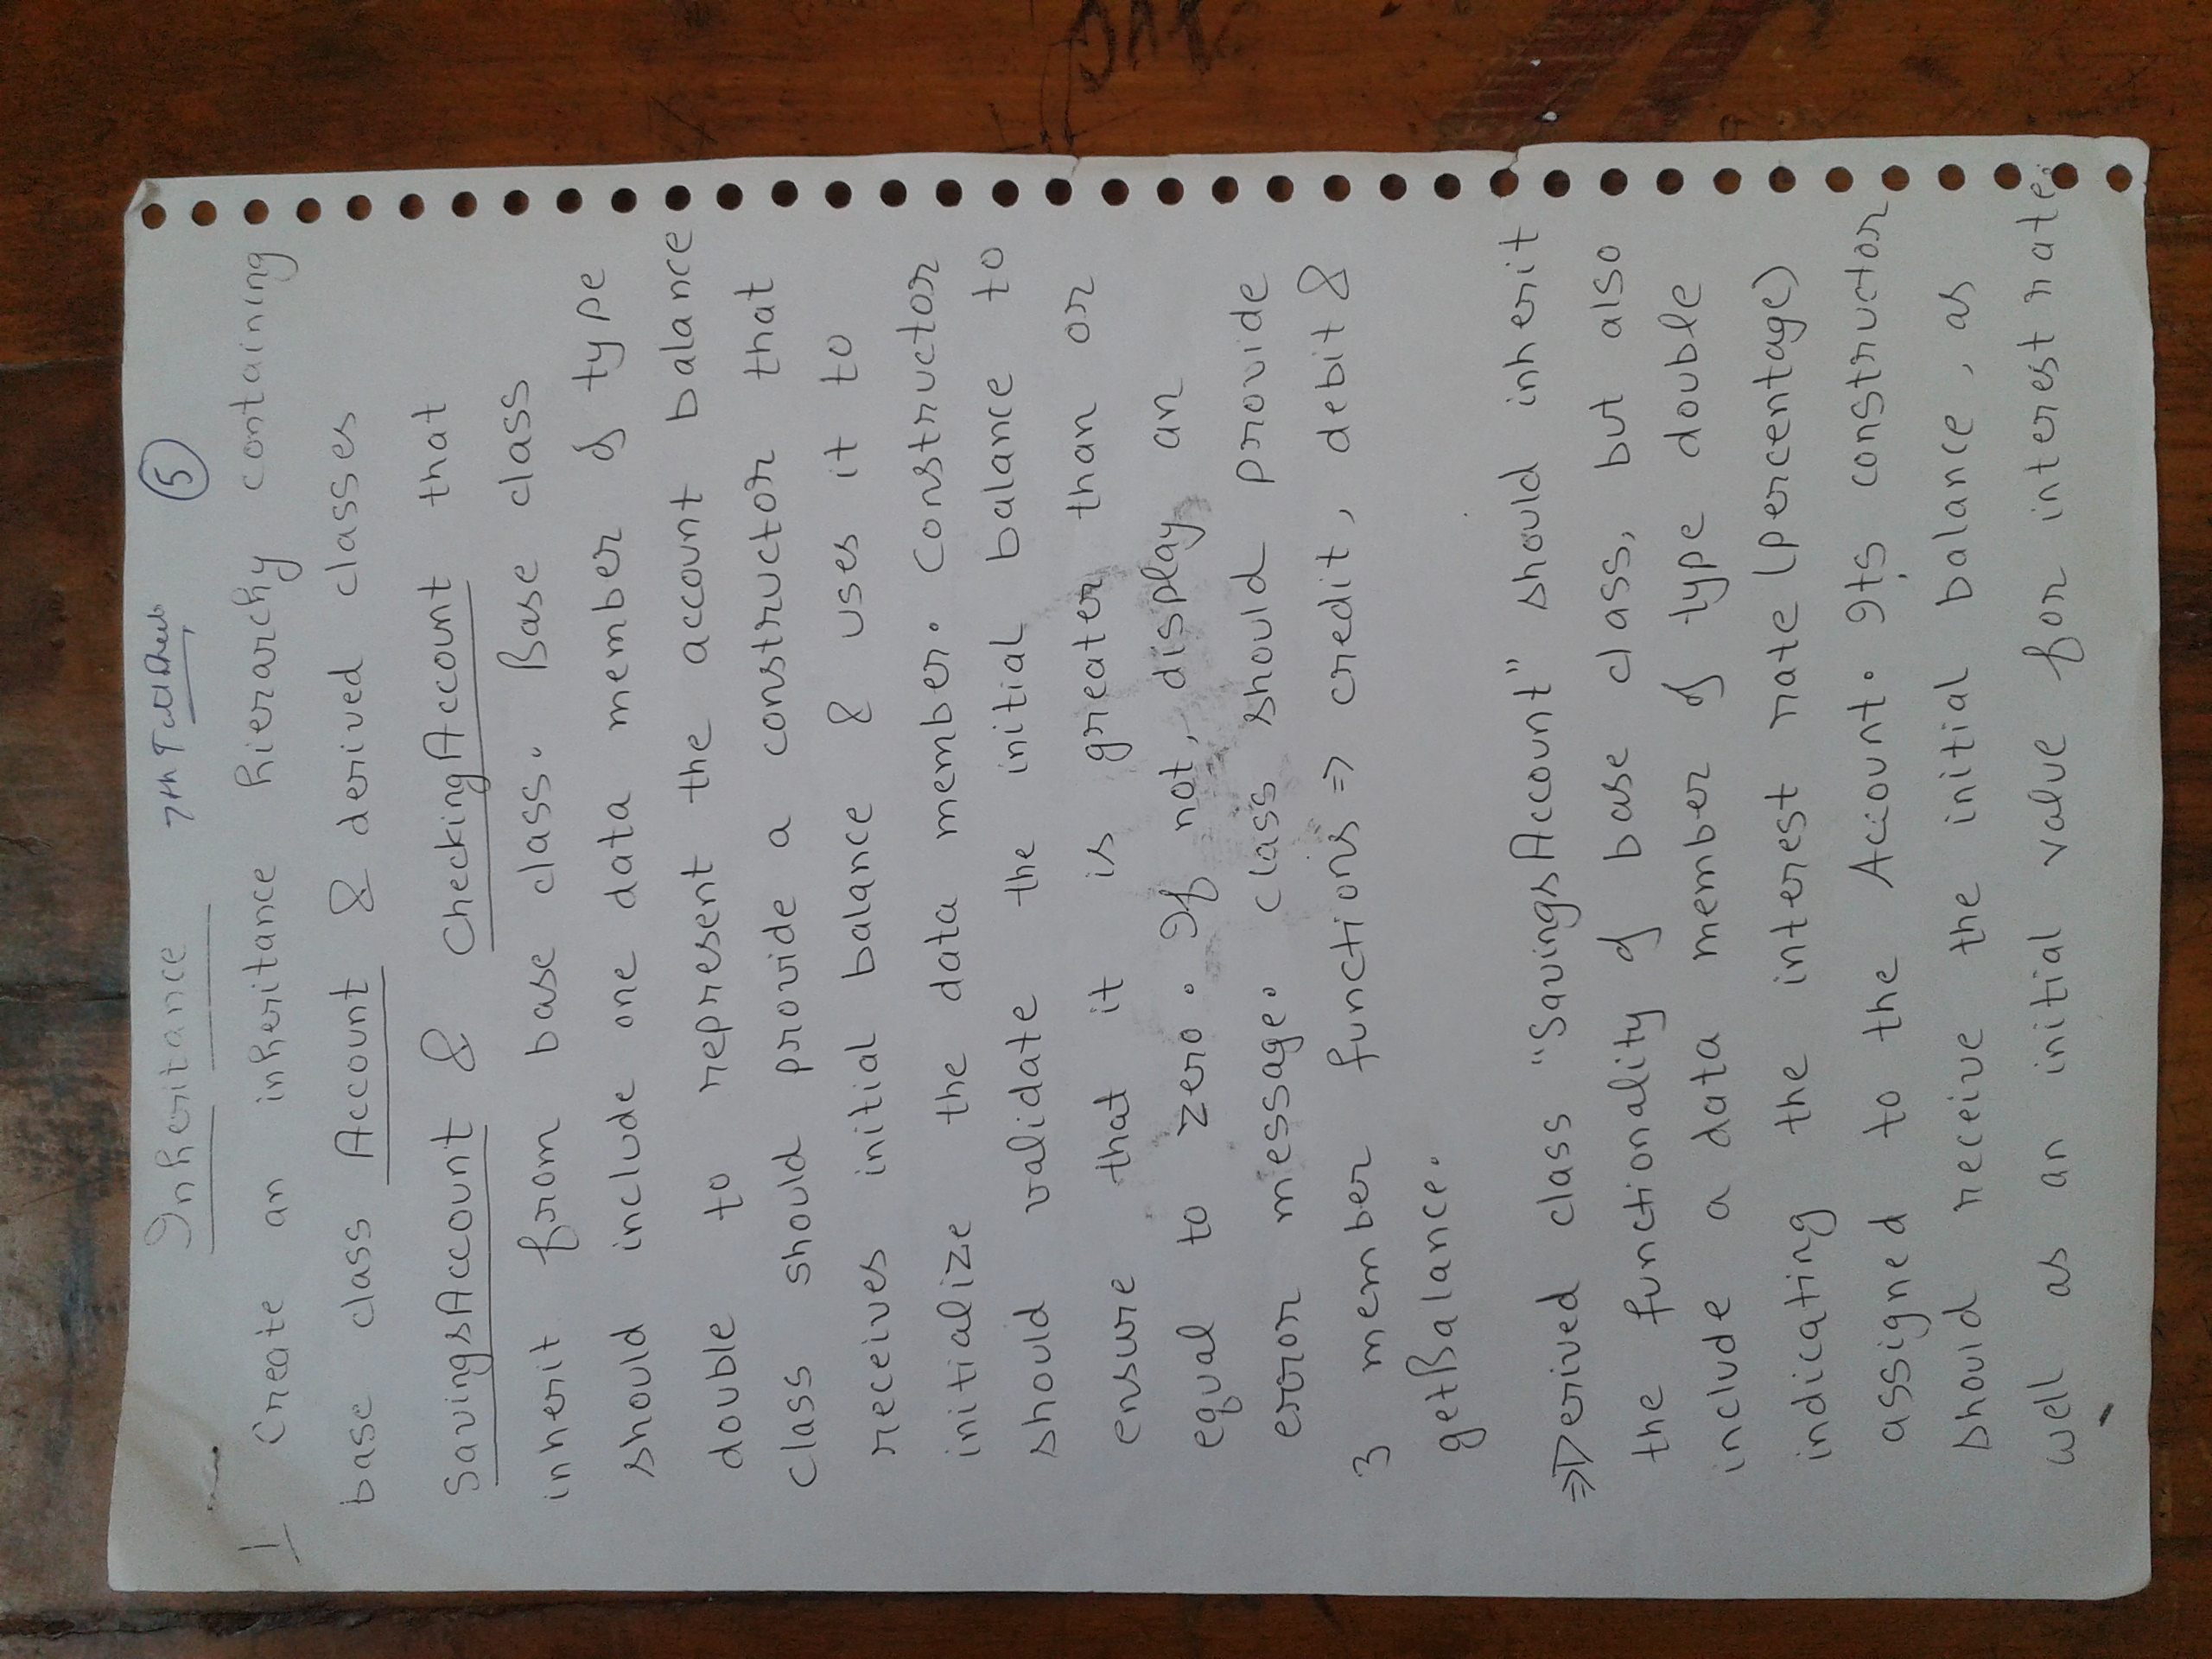 Inheritance 5
1 Create an inheritance hierarchy containing
base class Account & derived classes
SavingsAccount & CheckingAccount that
inherit from base class. Base class
should include one data member of type
double to represent the account balance
class should provide a constructor that
receives initial balance & uses it to
initialize the data member. Constructor
should validate the initial balance to
ensure that it is greater than or
equal to zero. If not, display an
error message. class should provide
3 member functions ⇒ credit, debit &
getBalance.
⇒ Derived class "SavingsAccount" should inherit
the functionality of base class, but also
include a data member of type double
indicating the interest rate (percentage)
assigned to the Account. Its constructor
should receive the initial balance, as
well as an initial value for interest rate.